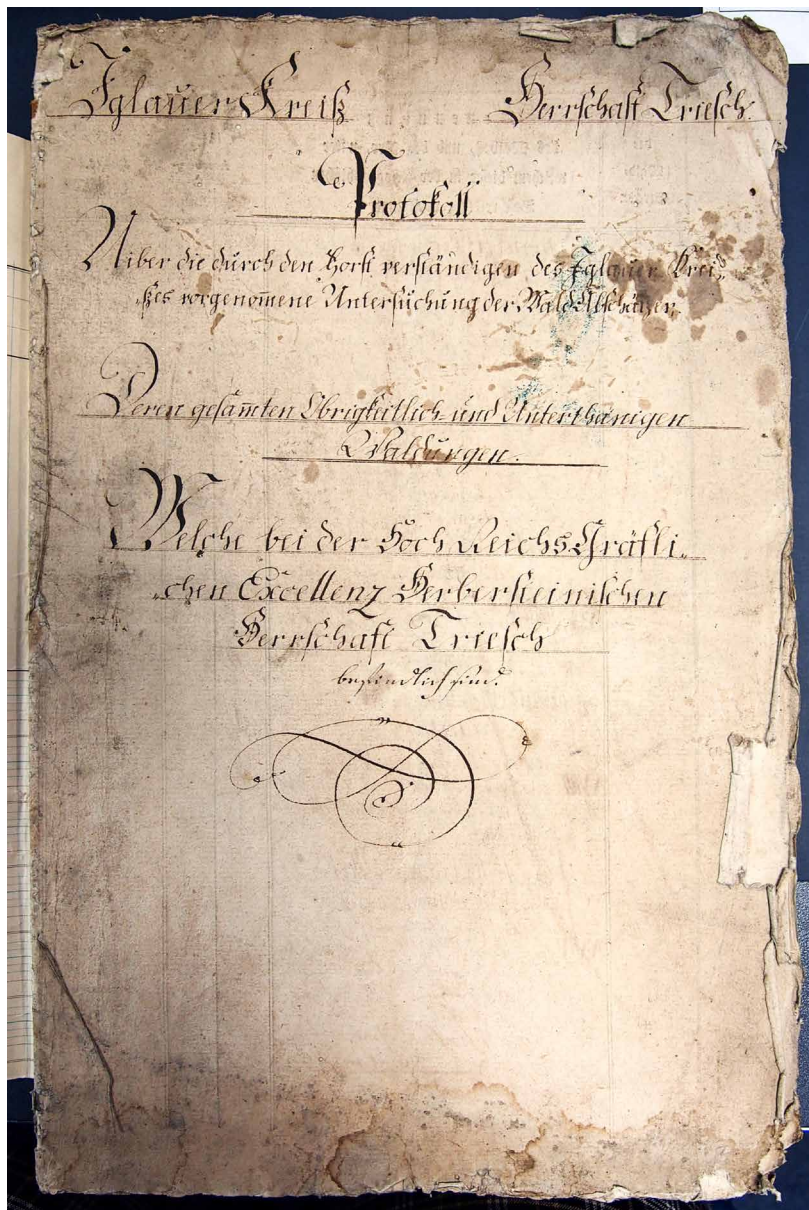 Iglauer Kreiß Herrschaft Triesch.
Protokoll
Uiber die durch den Forst verständigen des Iglauer Krei-
ßes vorgenomene Untersuchung der Wald Abschäzer.
Deren gesam̅ten Obrigkeitlich- und Unterthänigen
Waldungen.
Welche bei der Hoch ReichsGräfli-
chen Excellenz Herbersteinischen
Herrschaft Triesch
befindlich sind.